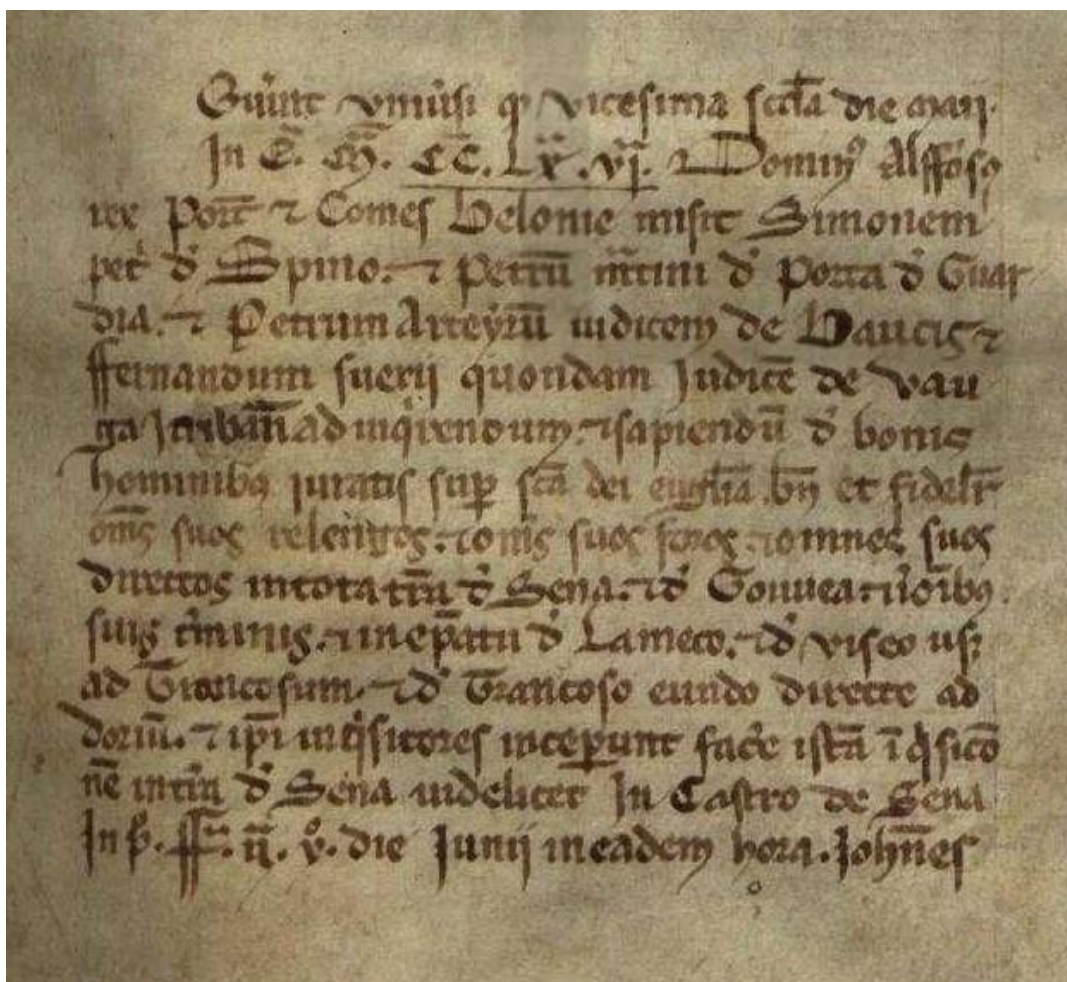 Sciant vniu̾si q̄ vicesima sc̄da die maij.
In E. M̄. CC. Lx. vj. ⁊ Domin⁹ Alffōsꝰ
rex Port̄ ⁊ Comes Bolonie misit Simonem
pet᷑ d̄ Spino. ⁊ Petrū m̄tini d̄ Porta d̄ Guar
dia. ⁊ Petrum Arteyrū iudicem de Baucis ⁊
ffernandum suerij quondam Judicē de vau
ga scribān̄ ad inq̇rendum. ⁊ sapiendū d̄ bonis
hominibꝰ iuratis suꝑ sc̄a dei euḡlia. bn̄ et fidelit᷑
om̄s suos relengos. ⁊ om̄s suos foros. ⁊ omnes suos
directos in tota tr̄a d̄ Sena. ⁊ d̄ Gouuea. ⁊
suis t̄minis. ⁊ in ep̄atu d̄ Lameco. ⁊ d̄ viseo usꝗ
ad Troncosum. ⁊ d̄ Trancoso eundo directe ad
doriū. ⁊ ip̄i inq̇sitores inceperunt fac̄e istā ī q̇sicō
nē in d̄ Sena uidelicet In Castro de Sena
In die Junij in eadem hora. Joh̄nes